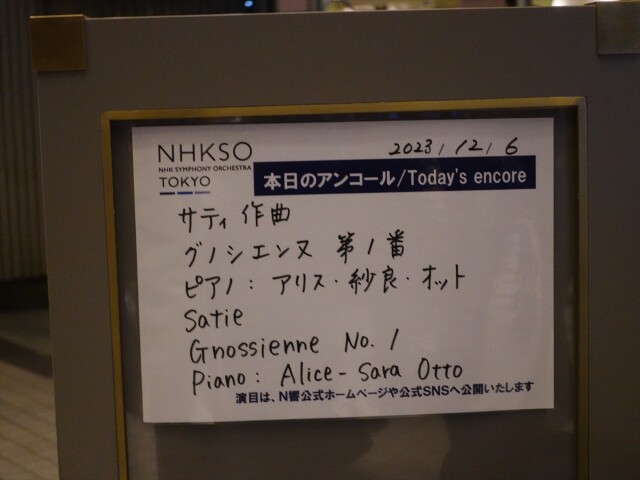 NHKSO
NHK SYMPHONY ORCHESTRA
TOKYO
2023/12/6
本日のアンコール/Today's encore
サティ 作曲
グノシエンヌ 第1番
ピアノ: アリス・紗良・オット
Satie
Gnossienne No. 1
Piano: Alice-Sara Otto
演目は、N響公式ホームページや公式SNSへ公開いたします